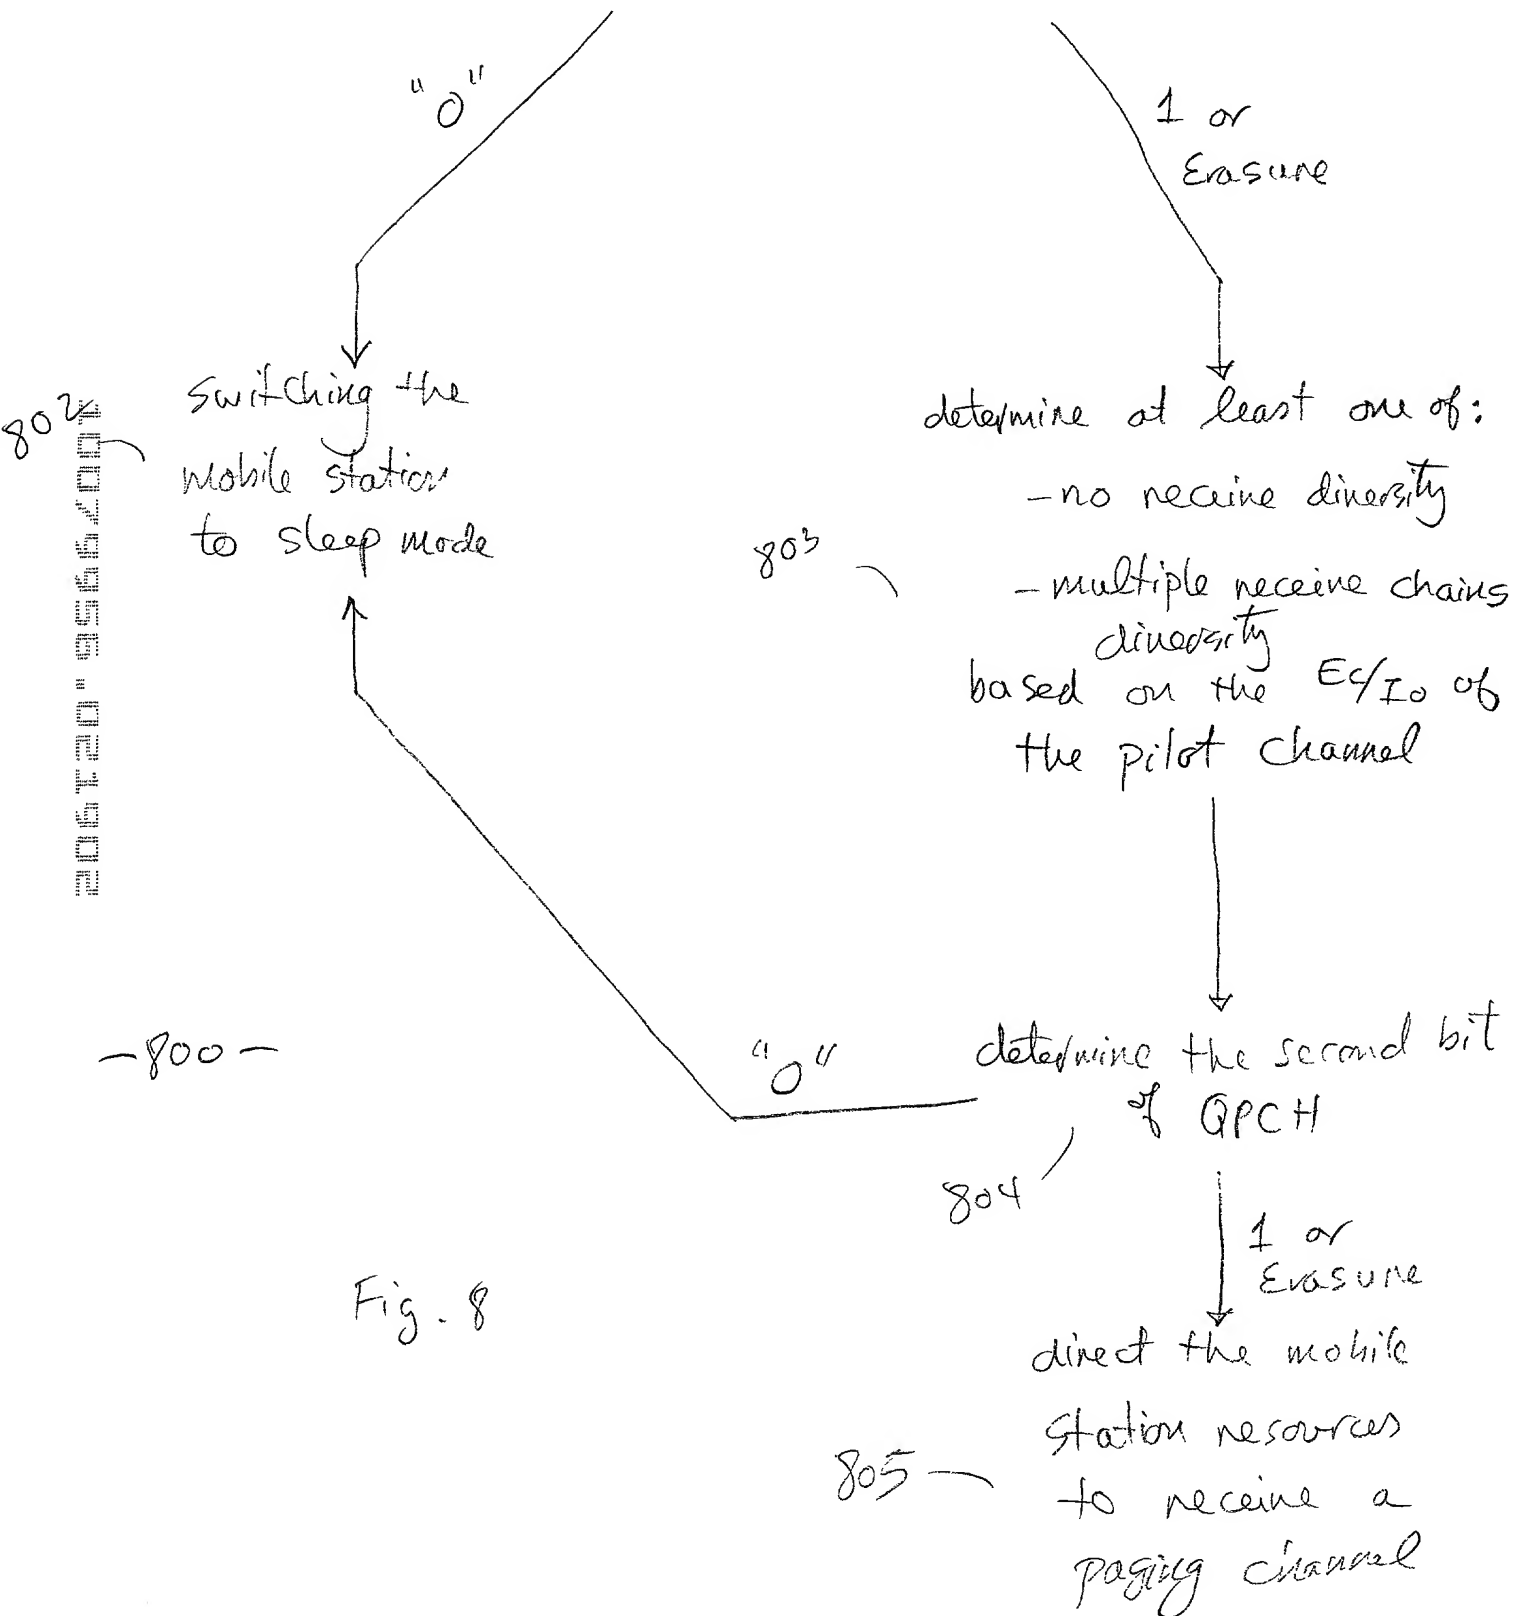 "0"
1 or
Erasure
802
switching the
mobile station
to sleep mode
determine at least one of:
- no receive diversity
803
- multiple receive chains
diversity
based on the Ec/Io of
the pilot channel
10075956.021902
-800-
"0"
determine the second bit
of QPCH
804
1 or
Erasure
Fig. 8
direct the mobile
station resources
805
to receive a
paging channel